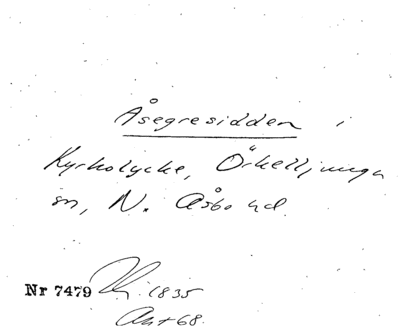 Åsegresidden i
Kyrkolycke, Örkelljunga
sn, N. Åsbo hd.
Nr 7479 1835